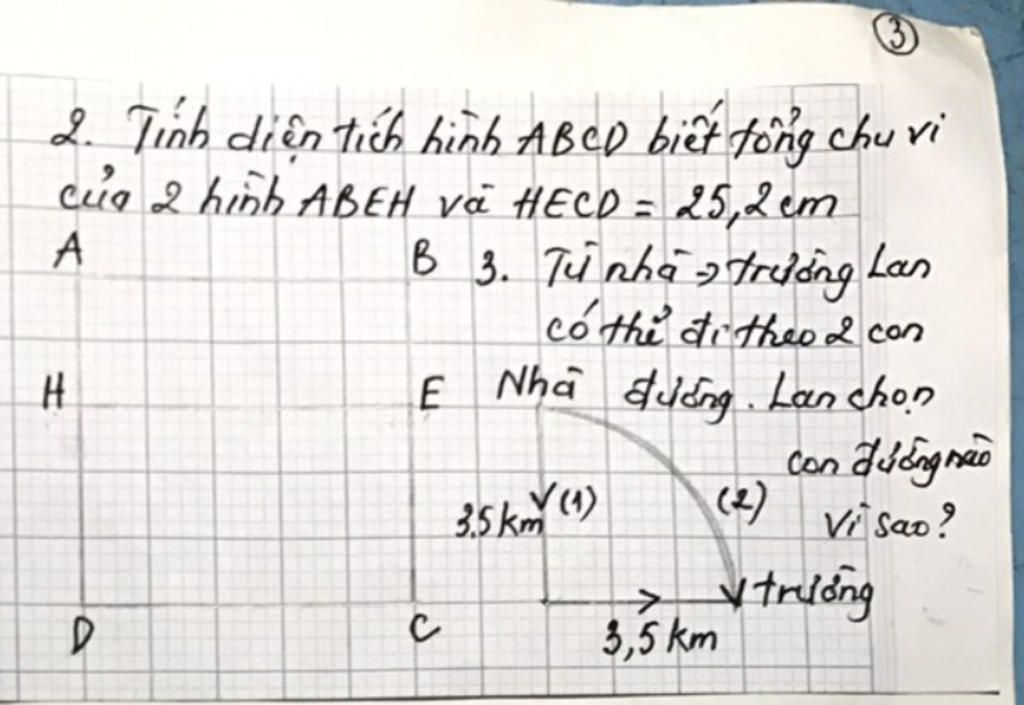 3
2. Tính diện tích hình ABCD biết tổng chu vi
của 2 hình ABEH và HECD = 25,2 cm
A
B
3. Từ nhà → trường Lan
có thể đi theo 2 con
H
E
Nhà
đường. Lan chọn
con đường nào
3.5 km
(1)
(2)
Vì sao?
trường
D
C
3,5 km